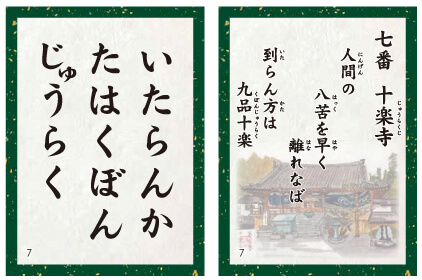 いたらんか
たはくぼん
じゅうらく
7
七番 十楽寺
じゅうらくじ
人間の
にんげん
八苦を早く
はっく はや
離れなば
はな
到らん方は
いた かた
九品十楽
くぼんじゅうらく
7